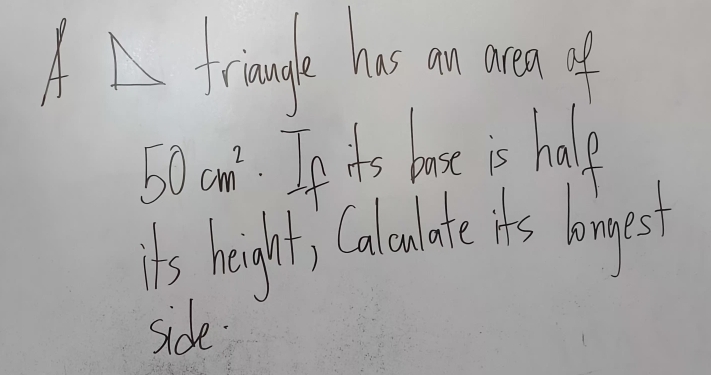 A ◺ triangle has an area of
50 cm². If its base is half
its height, Calculate its longest
side.